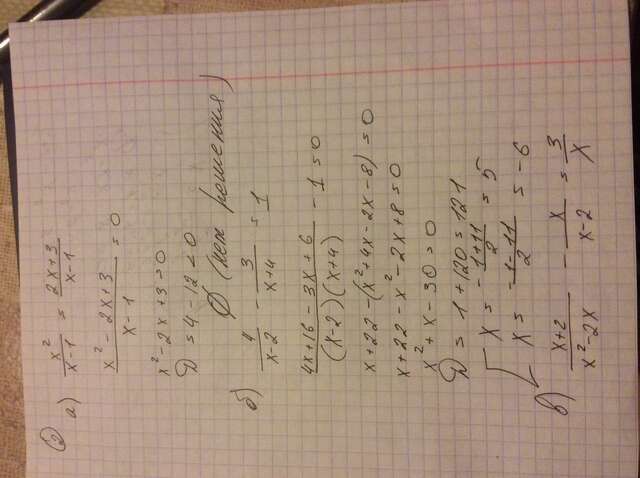 ② а) x²/(x-1) = (2x+3)/(x-1)
(x²-2x+3)/(x-1) = 0
x²-2x+3=0
D=4-12<0
∅ (нет решения)
б) 4/(x-2) - 3/(x+4) = 1
(4x+16-3x+6)/((x-2)(x+4)) - 1 = 0
x+22-(x²+4x-2x-8)=0
x+22-x²-2x+8=0
x²+x-30=0
D=1+120=121
[ x = (-1+11)/2 = 5
x = (-1-11)/2 = -6
в) (x+2)/(x²-2x) - x/(x-2) = 3/x